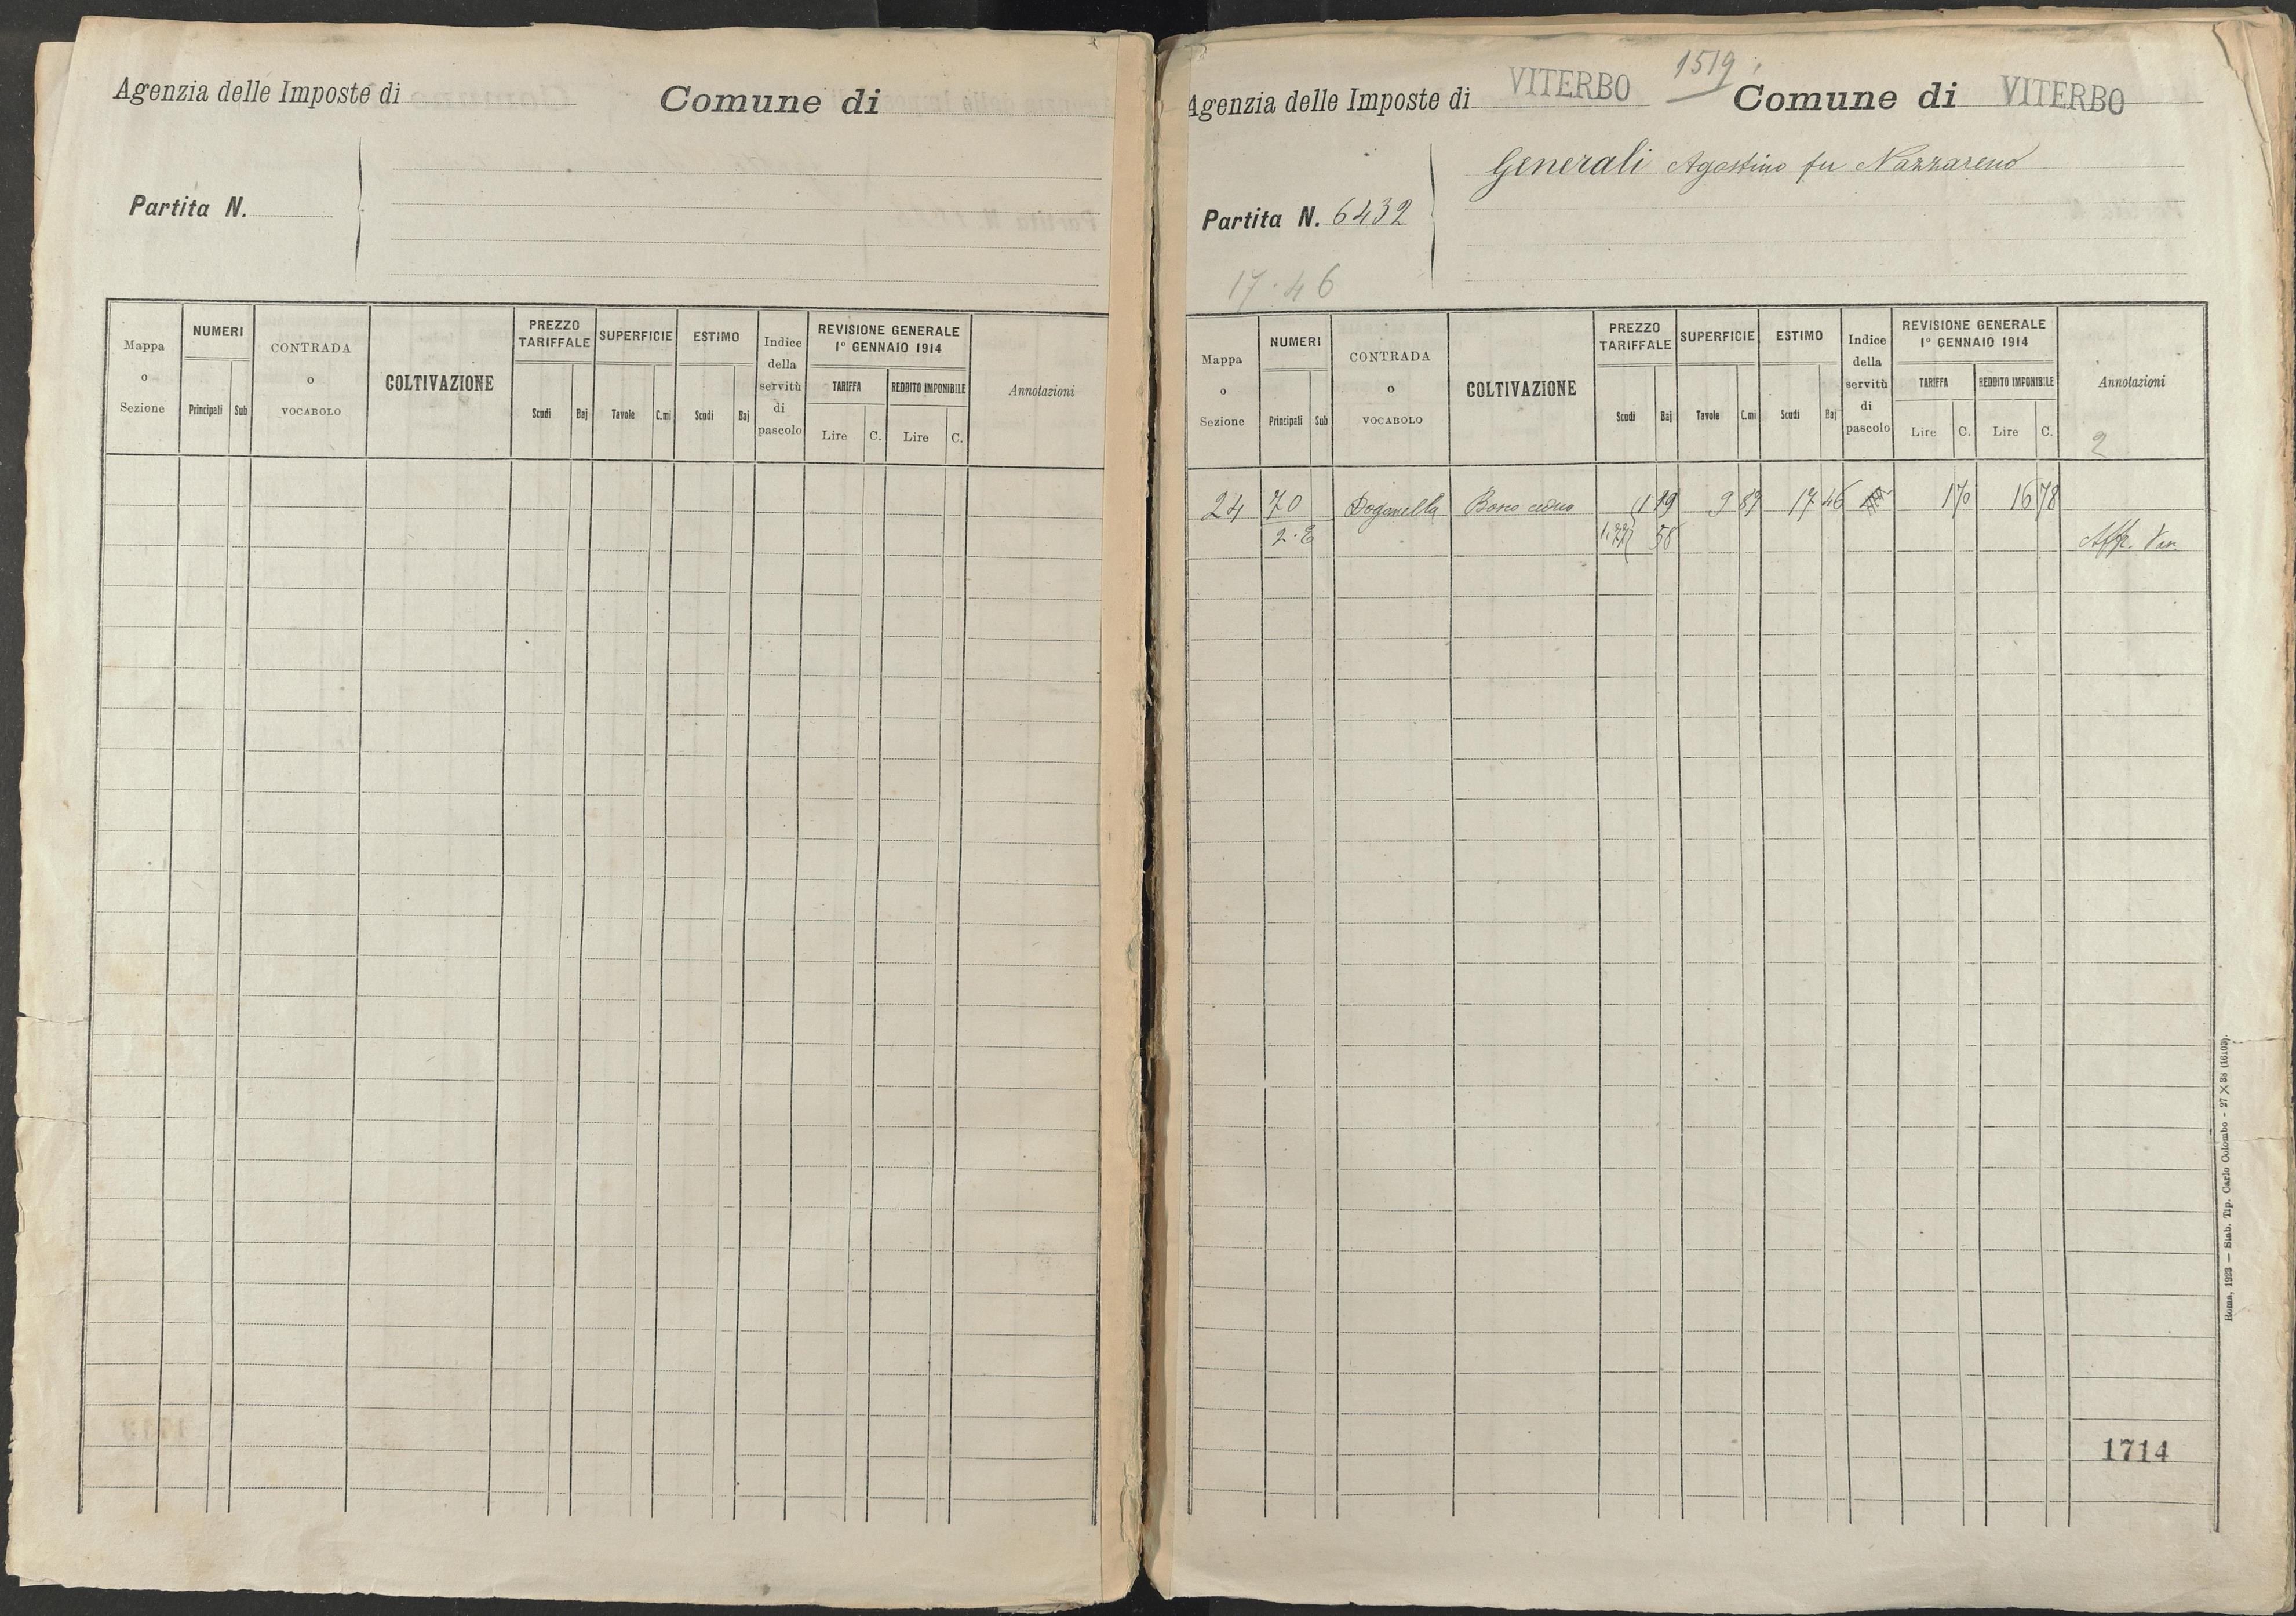 Agenzia delle Imposte di
Comune di
Partita N.
Mappa o Sezione
NUMERI
Principali Sub
CONTRADA o VOCABOLO
COLTIVAZIONE
PREZZO TARIFFALE
Scudi Baj
SUPERFICIE
Tavole C.mi
ESTIMO
Scudi Baj
Indice della servitù di pascolo
REVISIONE GENERALE
1° GENNAIO 1914
TARIFFA
Lire C.
REDDITO IMPONIBILE
Lire C.
Annotazioni
1519
Agenzia delle Imposte di VITERBO
Comune di VITERBO
Generali Agostino fu Nazzareno
Partita N. 6432
17.46
Mappa o Sezione
NUMERI
Principali Sub
CONTRADA o VOCABOLO
COLTIVAZIONE
PREZZO TARIFFALE
Scudi Baj
SUPERFICIE
Tavole C.mi
ESTIMO
Scudi Baj
Indice della servitù di pascolo
REVISIONE GENERALE
1° GENNAIO 1914
TARIFFA
Lire C.
REDDITO IMPONIBILE
Lire C.
Annotazioni
2
24 70 Doganella Bosco ceduo 1 19 9 87 17 46 1 70 16 78
2.E 58
Aff. Ven.
1714
Roma, 1923 — Stab. Tip. Carlo Colombo - 27 X 38 (16103).